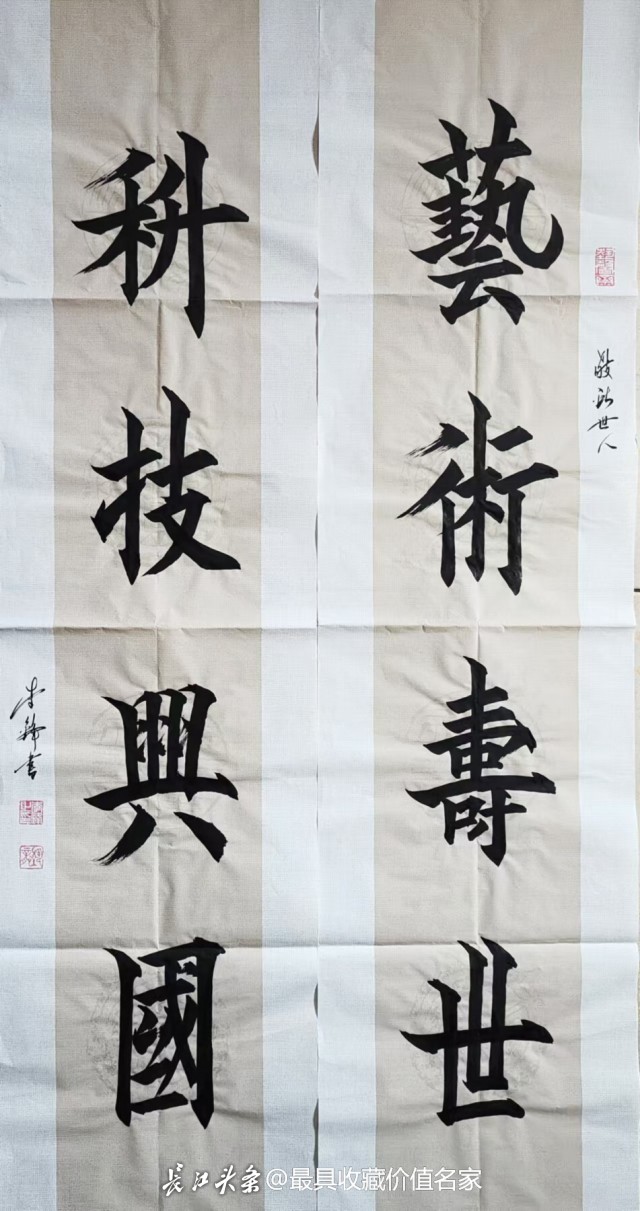 藝術壽世
科技興國
长江头条@最具收藏价值名家